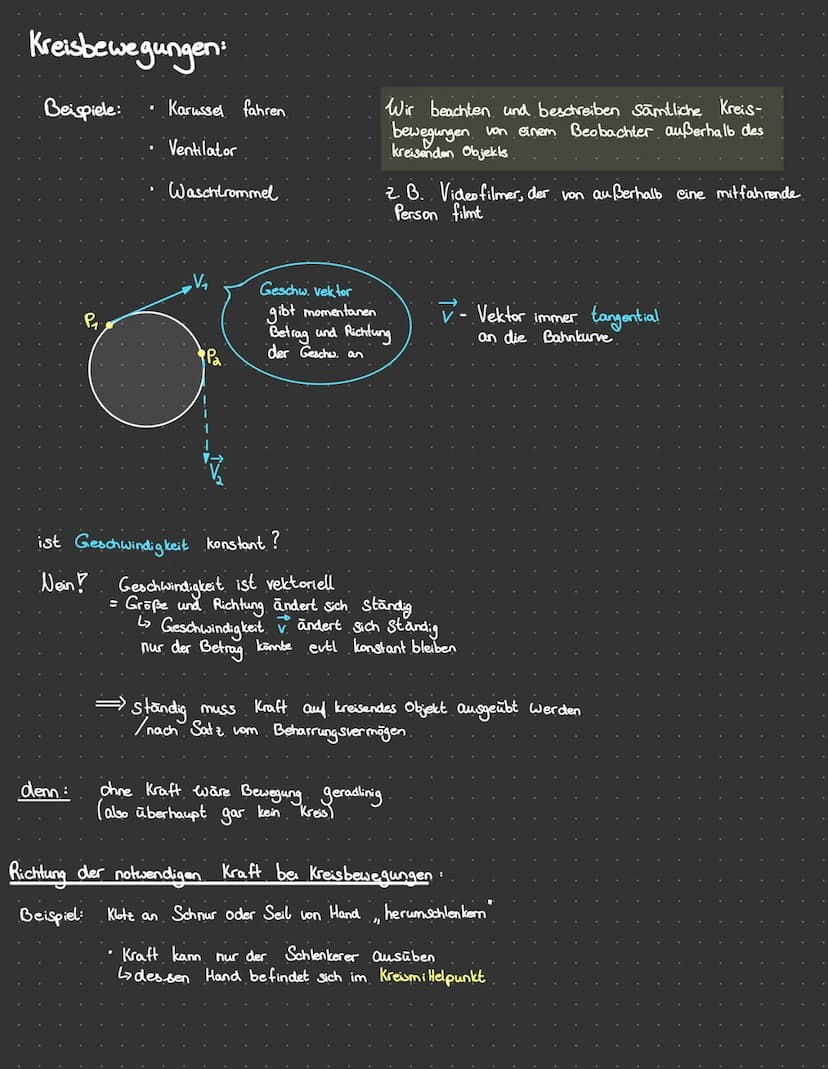 Kreisbewegungen:
Beispiele: · Karussel fahren
· Ventilator
· Waschtrommel
Wir beachten und beschreiben sämtliche Kreis-
bewegungen von einem Beobachter außerhalb des
kreisenden Objekts
z.B. Videofilmer, der von außerhalb eine mitfahrende
Person filmt
P₁
V₁
P₂
V₂
Geschw. vektor
gibt momentanen
Betrag und Richtung
der Geschw. an
v - Vektor immer tangential
an die Bahnkurve
ist Geschwindigkeit konstant?
Nein! Geschwindigkeit ist vektoriell
= Größe und Richtung ändert sich ständig
↳ Geschwindigkeit v ändert sich ständig
nur der Betrag könnte evtl konstant bleiben
⇒ ständig muss Kraft auf kreisendes Objekt ausgeübt werden
/nach Satz vom Beharrungsvermögen
denn: ohne Kraft wäre Bewegung geradlinig
(also überhaupt gar kein Kreis)
Richtung der notwendigen Kraft bei Kreisbewegungen:
Beispiel: Klotz an Schnur oder Seil von Hand „herumschlenkern"
· Kraft kann nur der Schlenkerer ausüben
↳ dessen Hand befindet sich im Kreismittelpunkt